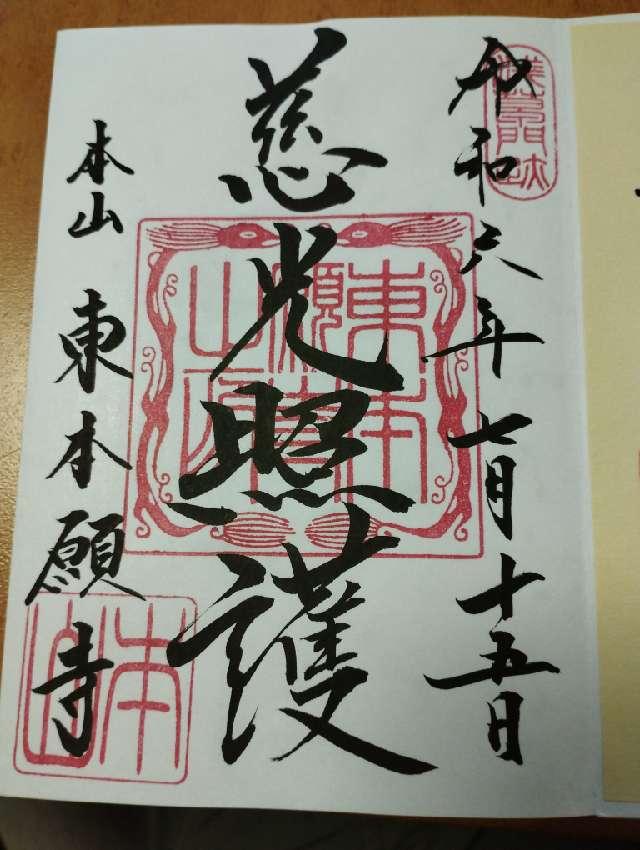 令和六年七月十五日
慈光照護
本山 東本願寺
本山